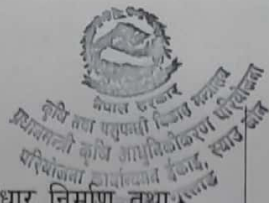 नेपाल सरकार
कृषि तथा पशुपन्छी विकास मन्त्रालय
प्रधानमन्त्री कृषि आधुनिकीकरण परियोजना
परियोजना कार्यान्वयन ईकाइ, स्याउ जोन
धार निर्माण तथा